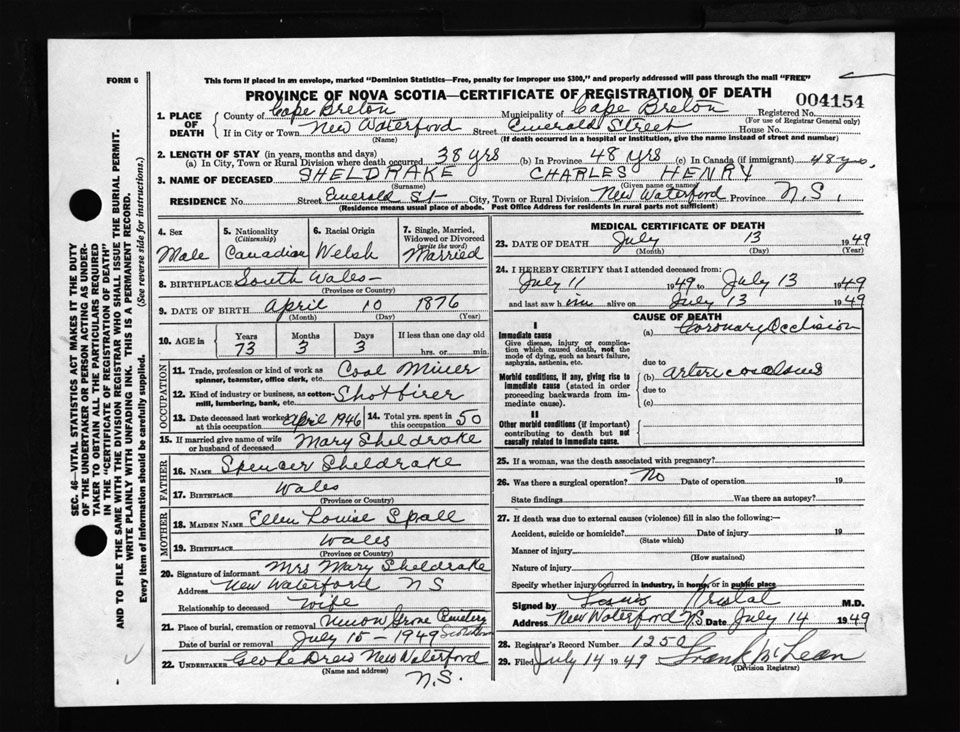 FORM 6
This form if placed in an envelope, marked "Dominion Statistics—Free, penalty for improper use $300," and properly addressed will pass through the mail "FREE"
PROVINCE OF NOVA SCOTIA—CERTIFICATE OF REGISTRATION OF DEATH
004154
1. PLACE OF DEATH County of Cape Breton Municipality of Cape Breton Registered No.
(For use of Registrar General only)
If in City or Town New Waterford Street Emerald Street House No.
(Name) (If death occurred in a hospital or institution, give the name instead of street and number)
2. LENGTH OF STAY (in years, months and days)
(a) In City, Town or Rural Division where death occurred 38 yrs (b) In Province 48 yrs (c) In Canada (if immigrant) 48 yrs.
3. NAME OF DECEASED SHELDRAKE CHARLES HENRY
(Surname) (Given name or names)
RESIDENCE No. Street Emerald St City, Town or Rural Division New Waterford Province N.S.
(Residence means usual place of abode. Post Office Address for residents in rural parts not sufficient)
4. Sex Male
5. Nationality (Citizenship) Canadian
6. Racial Origin Welsh
7. Single, Married, Widowed or Divorced (write the word) Married
8. BIRTHPLACE South Wales
(Province or Country)
9. DATE OF BIRTH April 10 1876
(Month) (Day) (Year)
10. AGE in Years Months Days If less than one day old
73 3 3 hrs. or min.
OCCUPATION
11. Trade, profession or kind of work as spinner, teamster, office clerk, etc. Coal Miner
12. Kind of industry or business, as cotton-mill, lumbering, bank, etc. Shotfirer
13. Date deceased last worked at this occupation April 1946
14. Total yrs. spent in this occupation 50
15. If married give name of wife or husband of deceased Mary Sheldrake
FATHER
16. NAME Spencer Sheldrake
17. BIRTHPLACE Wales
(Province or Country)
MOTHER
18. MAIDEN NAME Ellen Louise Spall
19. BIRTHPLACE Wales
(Province or Country)
20. Signature of informant Mrs Mary Sheldrake
Address New Waterford N S
Relationship to deceased Wife
21. Place of burial, cremation or removal Union Grove Cemetery
Date of burial or removal July 15-1949
22. UNDERTAKER Geo Ke Drew New Waterford
(Name and address)
N.S.
MEDICAL CERTIFICATE OF DEATH
23. DATE OF DEATH July 13 1949
(Month) (Day) (Year)
24. I HEREBY CERTIFY that I attended deceased from:
July 11 1949 to July 13 1949
and last saw him alive on July 13 1949
CAUSE OF DEATH
I
Immediate cause
Give disease, injury or complication which caused death, not the mode of dying, such as heart failure, asphyxia, asthenia, etc.
(a) Coronary Occlision
due to
Morbid conditions, if any, giving rise to immediate cause (stated in order proceeding backwards from immediate cause).
(b)
due to
(c)
II
Other morbid conditions (if important) contributing to death but not causally related to immediate cause.
25. If a woman, was the death associated with pregnancy?
26. Was there a surgical operation? No Date of operation 19
State findings Was there an autopsy?
27. If death was due to external causes (violence) fill in also the following:
Accident, suicide or homicide? Date of injury 19
(State which)
Manner of injury
(How sustained)
Nature of injury
Specify whether injury occurred in industry, in home, or in public place
Signed by Kristal M.D.
Address New Waterford N.S. Date July 14 1949
28. Registrar's Record Number 1250
29. Filed July 14 1949 Frank McLean
(Division Registrar)
SEC. 46—VITAL STATISTICS ACT MAKES IT THE DUTY
OF THE UNDERTAKER OR PERSON ACTING AS UNDER-
TAKER TO OBTAIN ALL THE PARTICULARS REQUIRED
IN THE "CERTIFICATE OF REGISTRATION OF DEATH"
AND TO FILE THE SAME WITH THE DIVISION REGISTRAR WHO SHALL ISSUE THE BURIAL PERMIT.
WRITE PLAINLY WITH UNFADING INK. THIS IS A PERMANENT RECORD.
Every item of information should be carefully supplied. (See reverse side for instructions.)